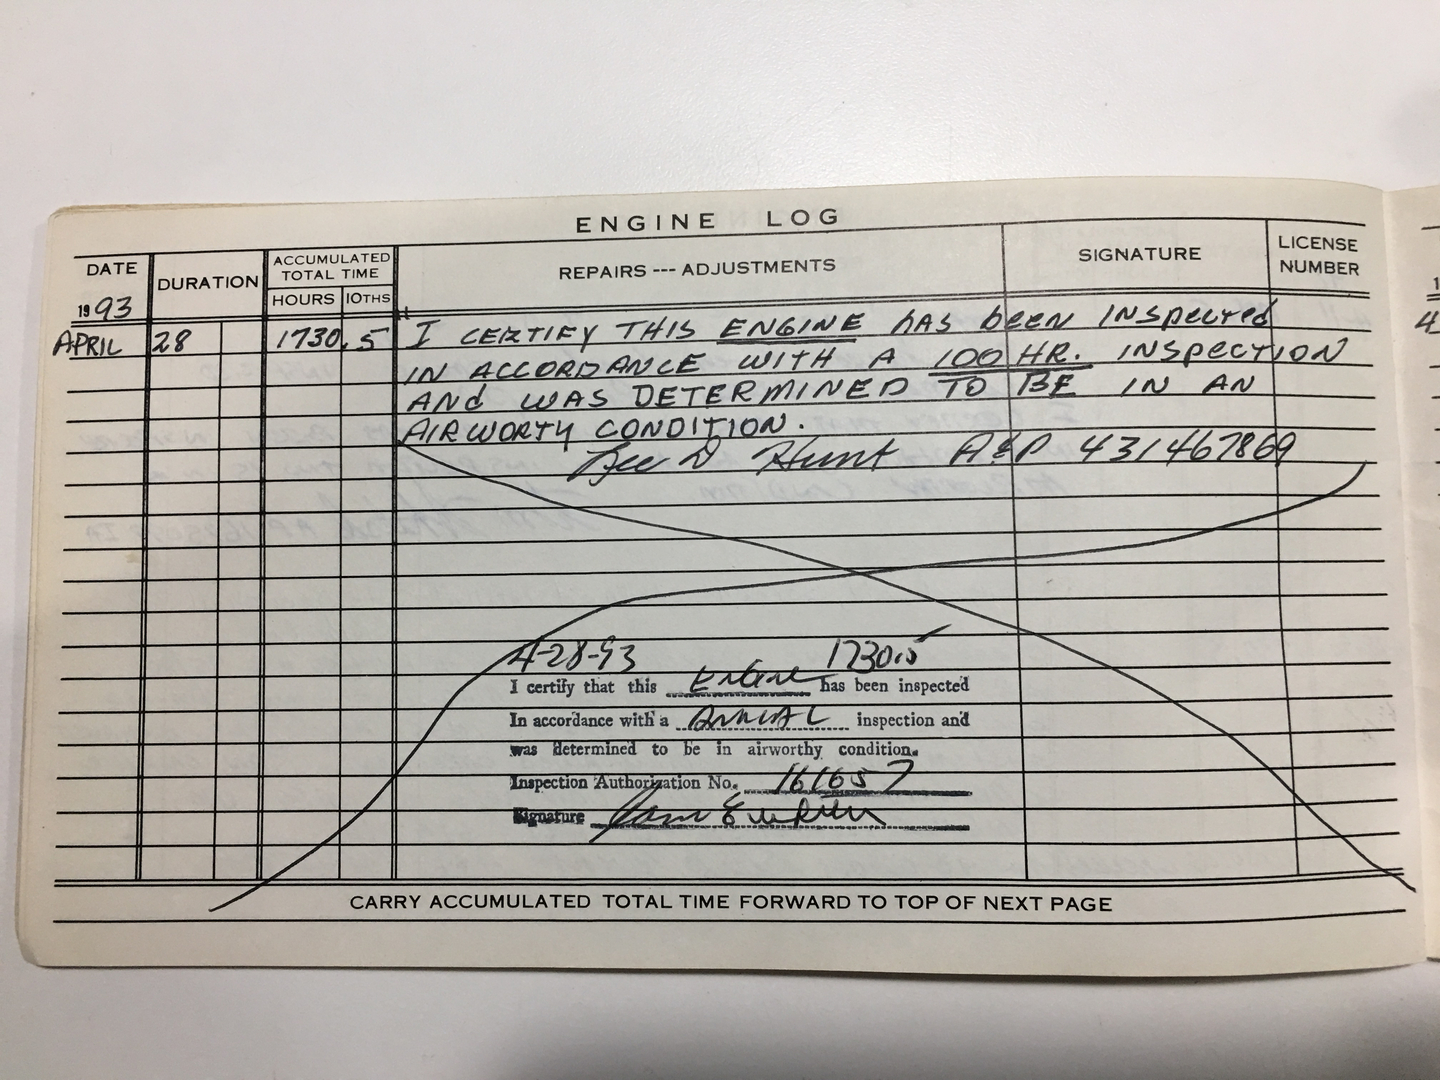 ENGINE LOG
DATE DURATION ACCUMULATED TOTAL TIME REPAIRS --- ADJUSTMENTS SIGNATURE LICENSE NUMBER
HOURS 10THS
1993
APRIL 28 1730.5 I CERTIFY THIS ENGINE HAS bEEN INSPECTEd
IN ACCORDANCE WITH A 100 HR. INSPECTION
ANd WAS DETERMINED TO BE IN AN
AIRWORTY CONDITION.
D Hunt A&P 431467869
4-28-93 1730.5
I certify that this ENGINE has been inspected
In accordance with a ANNUAL inspection and
was determined to be in airworthy condition.
Inspection Authorization No. 161657
Signature
CARRY ACCUMULATED TOTAL TIME FORWARD TO TOP OF NEXT PAGE